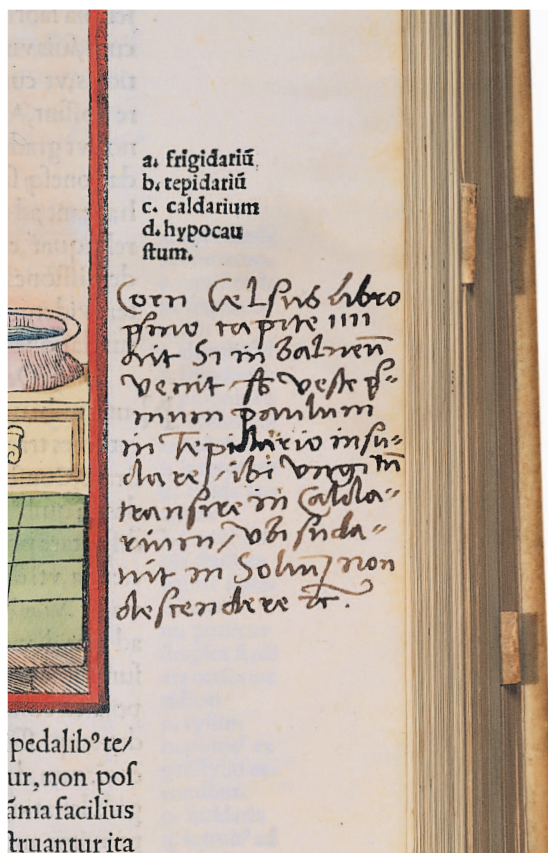 a. frigidariū
b. tepidariū
c. caldarium
d. hypocau
stum.
Corn Celsus libro
pſmo capite IIII
ait Si in balneū
venit sb veste p̄-
mum paulum
in Tepidario insu-
dare / ibi vngi tū
transire in Calda-
rium / vbi suda-
uit in Soliū non
descendere &c.
pedalibꝰ te/
ur, non poſ
āma facilius
ſtruantur ita